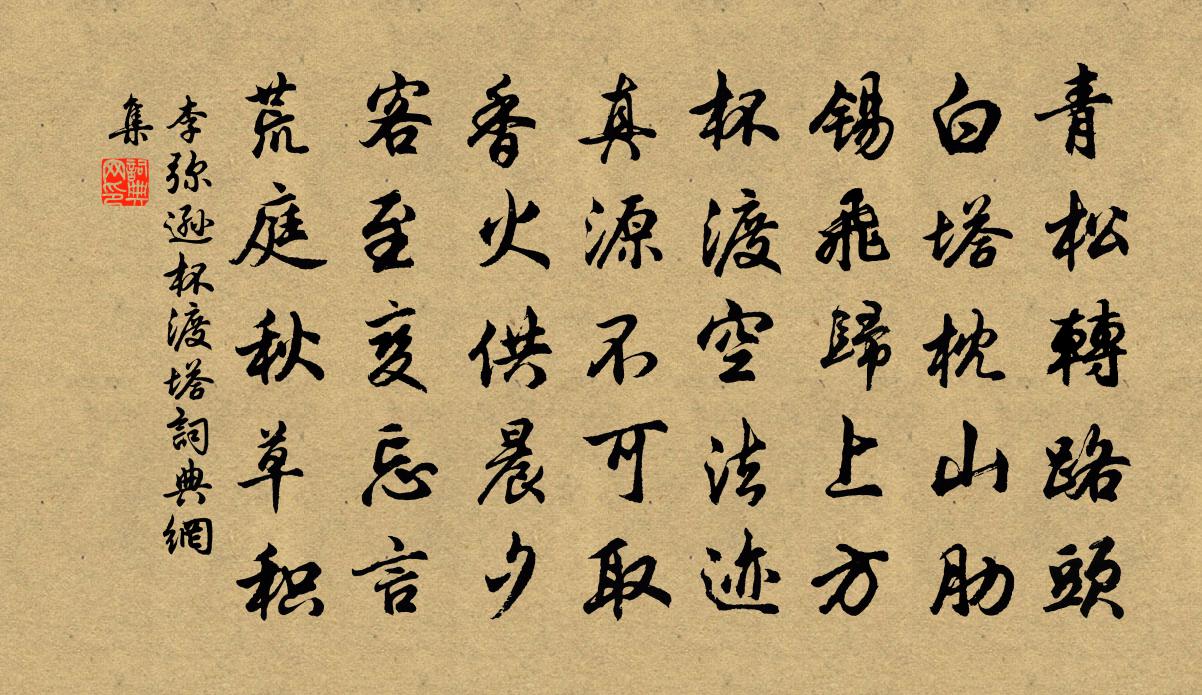 青松轉路頭
白塔枕山肋
錫飛歸上方
杯渡空法迹
真源不可取
香火供晨夕
客至叓忘言
荒庭秋草积
李弥遜杯渡塔詞典網
集
詞典
网印